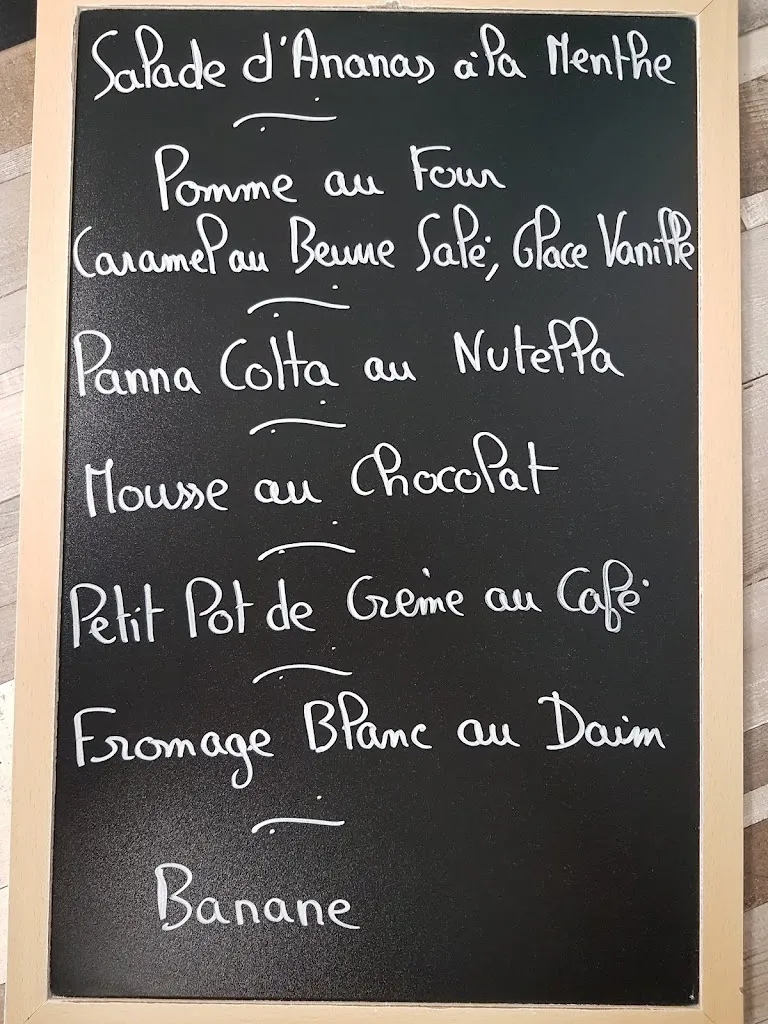 Salade d'Ananas à la Menthe
Pomme au Four
Caramel au Beurre Salé, Glace Vanille
Panna Cotta au Nutella
Mousse au Chocolat
Petit Pot de Crème au Café
Fromage Blanc au Daim
Banane